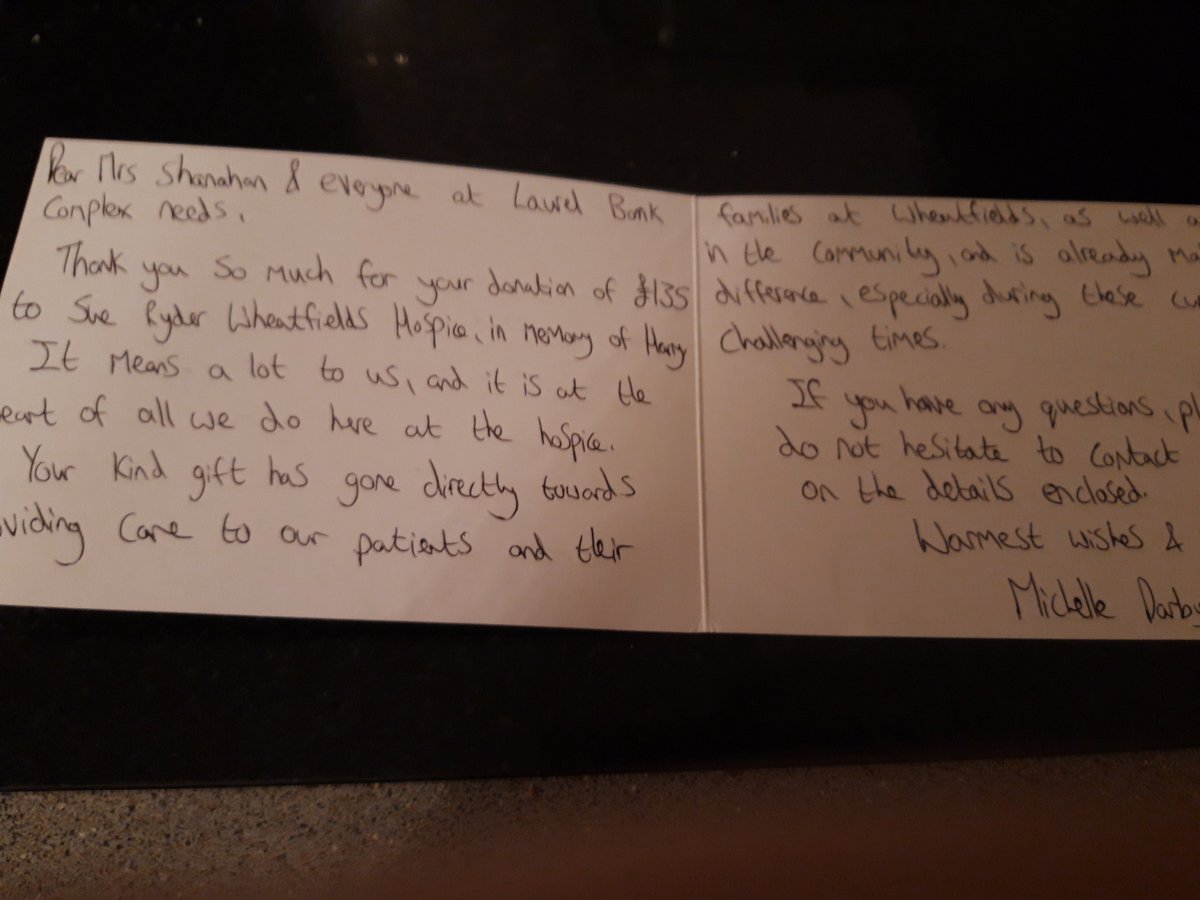 Dear Mrs Shanahan & everyone at Laurel Bank
Complex needs,
Thank you so much for your donation of £135
to Sue Ryder Wheatfields Hospice, in memory of Harry
It means a lot to us, and it is at the
eart of all we do here at the hospice.
Your kind gift has gone directly towards
oviding care to our patients and their
families at Wheatfields, as well a
in the community, and is already ma
difference, especially during these cu
challenging times.
If you have any questions, pl
do not hesitate to contact
on the details enclosed.
Warmest wishes &
Michelle Darby